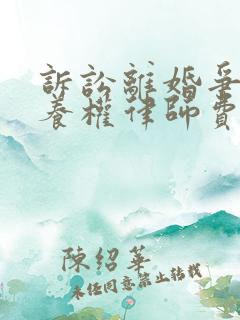 訴訟離婚爭
養權律師費
陳紹華
未經同意禁止轉載